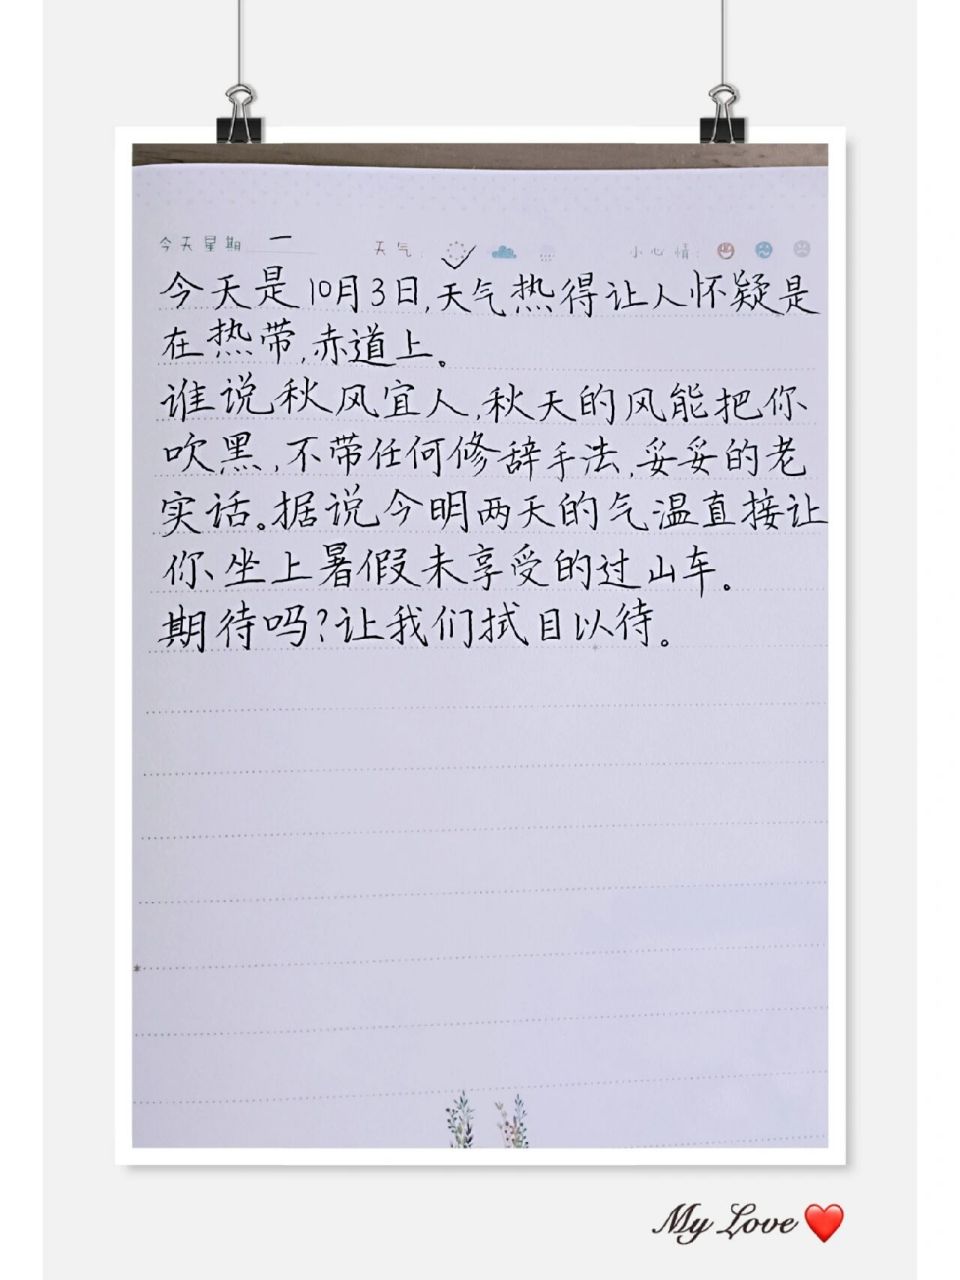 今天星期 一 天气: 小心情:
今天是10月3日,天气热得让人怀疑是
在热带,赤道上。
谁说秋风宜人,秋天的风能把你
吹黑,不带任何修辞手法,妥妥的老
实话。据说今明两天的气温直接让
你坐上暑假未享受的过山车。
期待吗?让我们拭目以待。
My Love